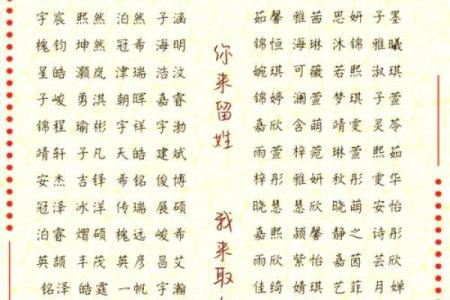 宇宸 熙然 泊然 子涵
槐钧 坤然 冠希 海明
星皓 灏岚 津瑞 浩汶
子峻 勇淇 朝晖 嘉睿
锦程 瑜彬 宇祥 宇渤
靖轩 子凡 天皓 建斌
安杰 吉铎 希铭 俊博
冠泽 冰洋 传瑞 展硕
泊睿 熠硕 槐远 峻希
英颉 丰茂 英彦 昌艾
铭泽 皓霆 宇瀚
你来留姓
我来取
茹馨 雅茜 思妍 子墨
锦恒 海琳 沐妍 雅曦
婉琪 可薇 若熙 淑琪
锦婷 澜萱 梦琪 子萱
嘉欣 含萌 靖雯 灵芩
雨萱 梓菀 琳萱 熙茹
梓彤 雅妍 秋彤 雯华
晓慧 慧欣 晓萌 安怡
嘉熙 颖馨 静之 诗彤
雨欣 紫怡 嘉茵 若汐
佳绮 婧琪 艺菲 月婵